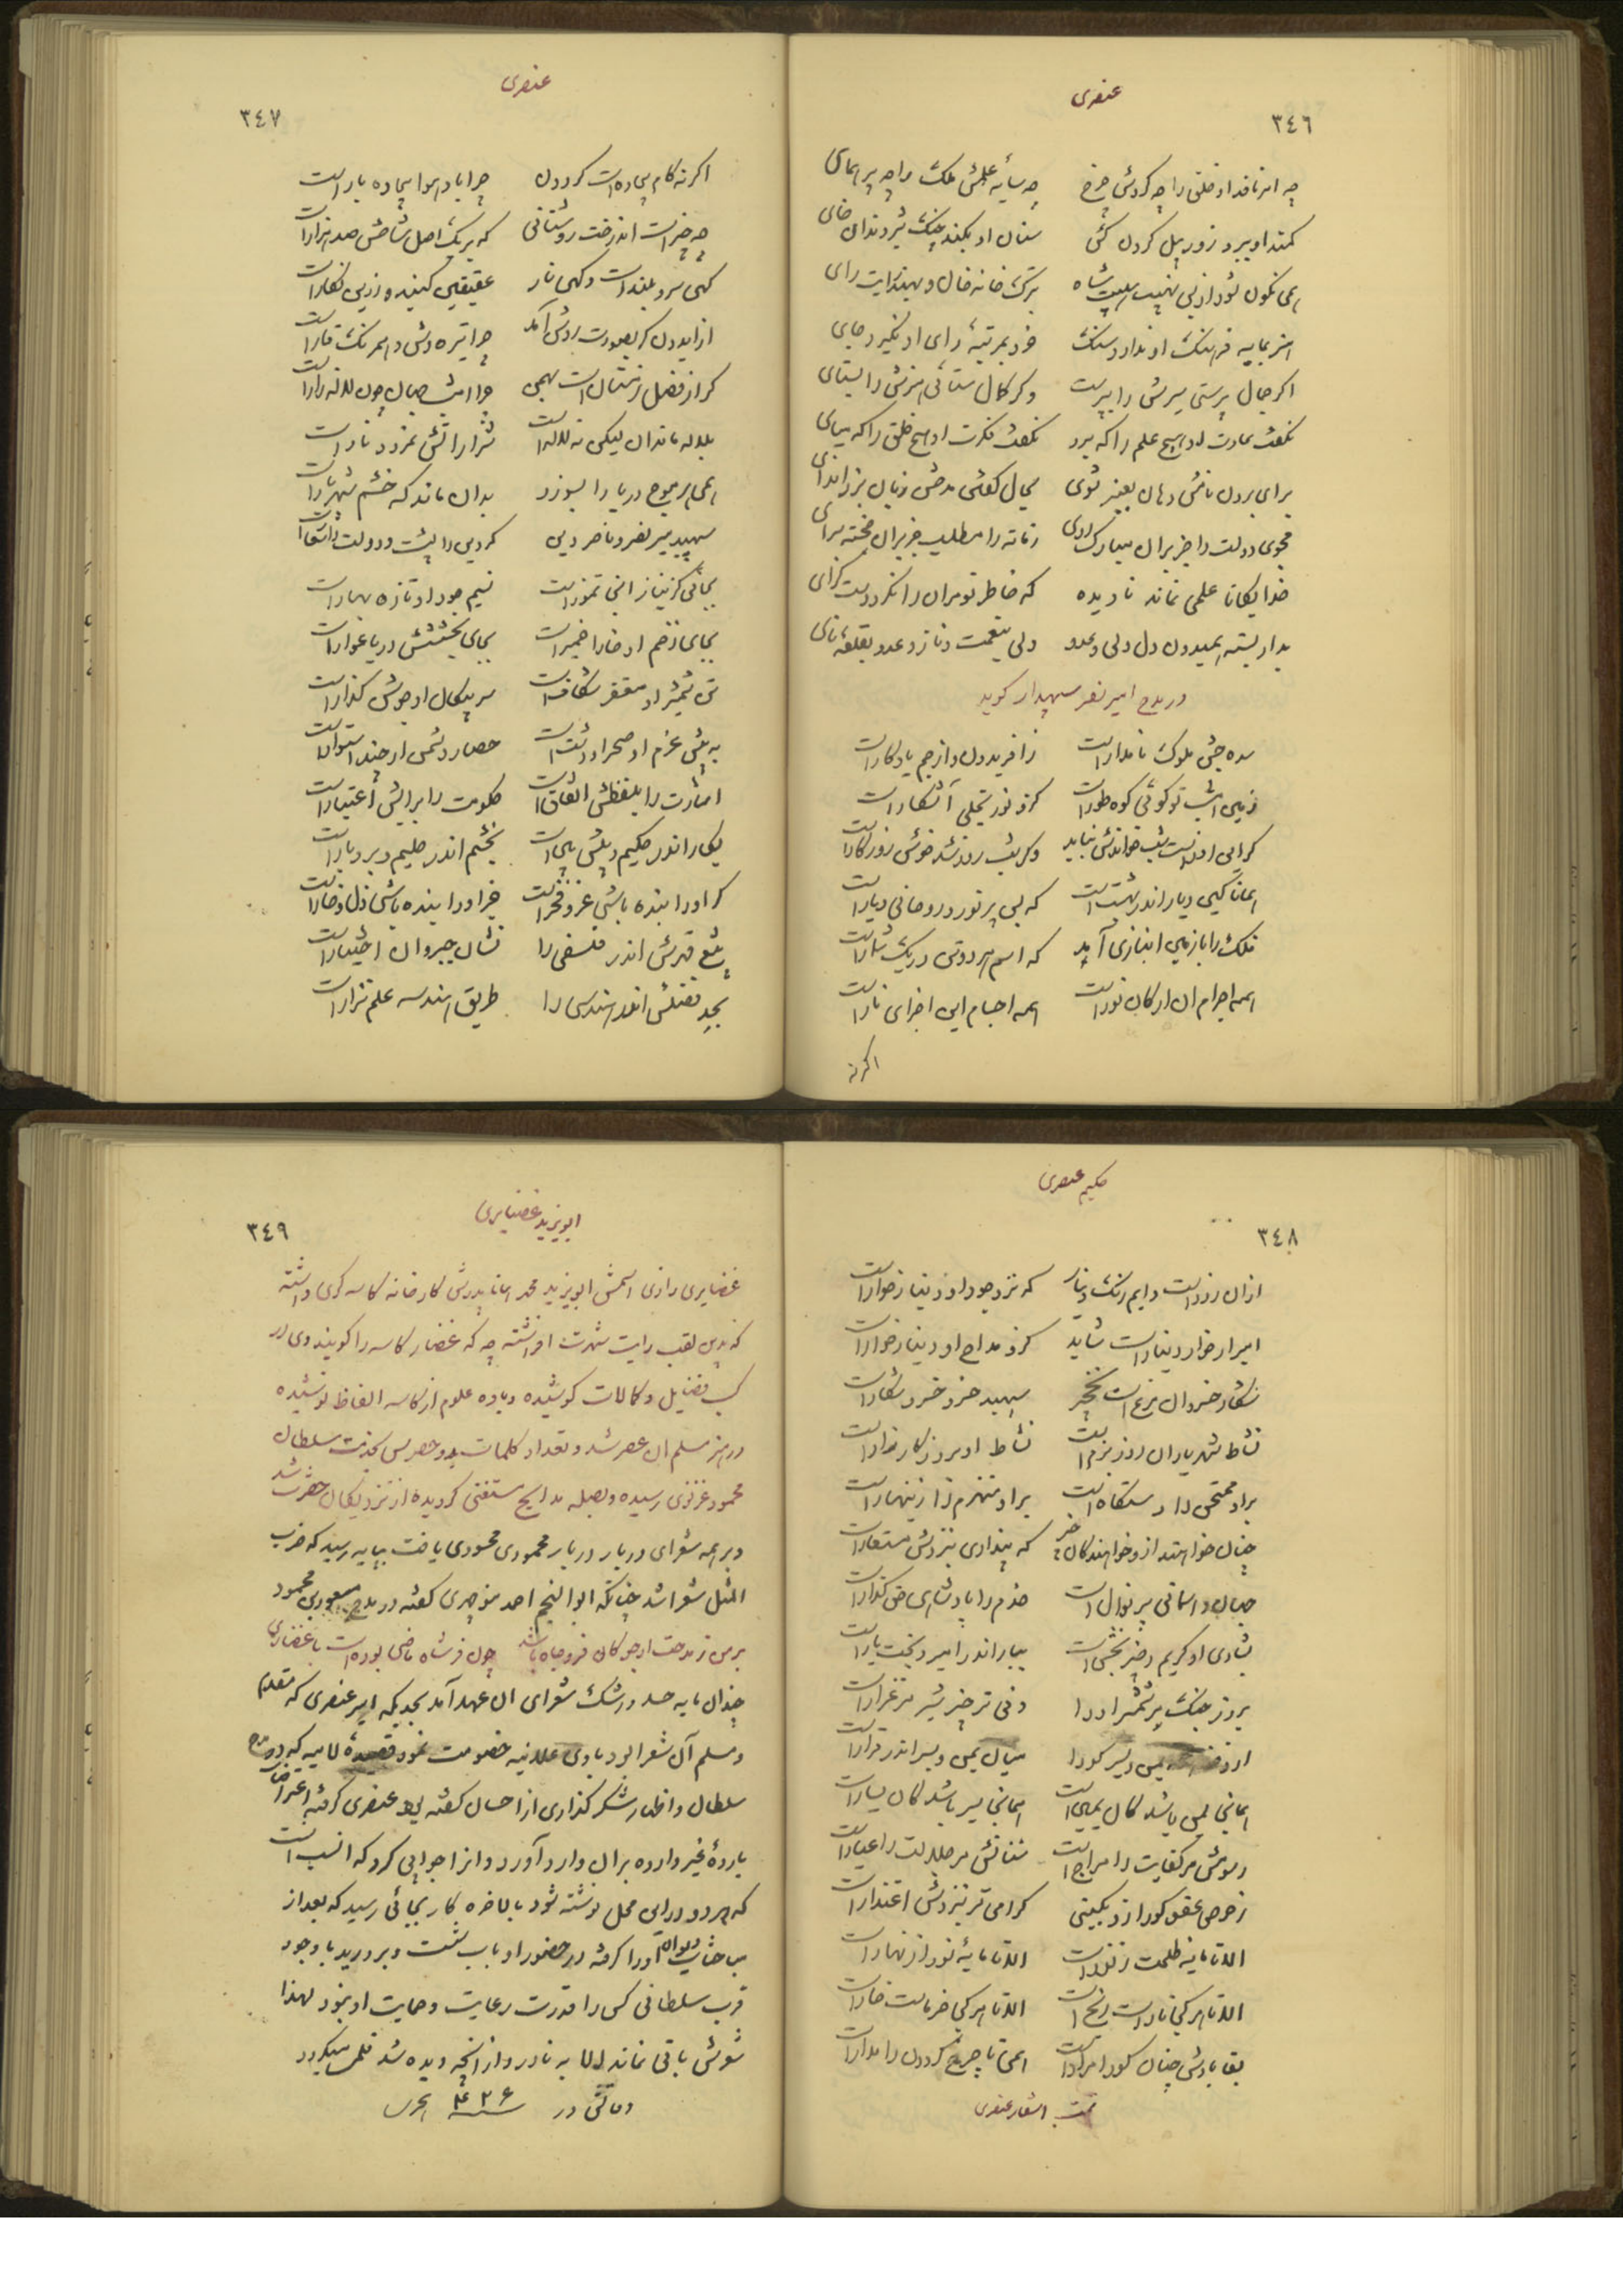 عنصری
٣٤٦
چه امر نافذ او خلق را چه گردش چرخ چه سایهٔ علمش ملک را چه پر همای
کمند او ببرد زور پیل گردن کش سنان او بکند چنک شیر دندان خای
همی نگون شود از بس نهیب هیبت شاه بترک خانه خان و بهند رایت رای
هنر بپایه فرهنک او ندارد سنک خرد بمرتبهٔ رای او نگیرد جای
اگر جمال پرستی سرش را بپرست وگر کمال ستائی هنرش را بستای
نگفت عادت او هیچ علم را که برد نگفت فکرت او هیچ خلق را که بپای
برای بردن نامش دهان بعنبر شوی بجای گفتن مدحش زبان بزر اندای
مجوی دولت را جز بر آن مبارک روی زمانه را مطلب جز بر آن خجسته سرای
خدایگانا علمی نماند نادیده که خاطر تو مر آن را نکرد دست گرای
بداد بسته همیدون دل ولی و عدو ولی بنعمت و ناز و عدو بقلعهٔ نای
در مدح امیر نصر سپهدار گوید
سده جشن ملوک نامدار است ز افریدون و از جم یادگار است
زمین امشب تو گوئی کوه طور است کزو نور تجلی آشکار است
گر این روز است شب خواندش نباید وگر شب روز شد خوش روزگار است
همانا کین دیار اندر بهشت است که بس پر نور و روحانی دیار است
فلک را با زمین انبازی آمد که اسم هر دو تن در یک شمار است
همه اجرام آن ارکان نور است همه اجسام این اجزای نار است
اگر نه
عنصری
٣٤٧
اگر نه کام بیجاده است گردون چرا باد هوا بیجاده بار است
چه چیز است اندرخت روشنائی که بر یک اصل شاخش صد هزار است
گهی سرو بلند است و گهی نار عقیقین گنبد و زرین نگار است
ار ایدون کر بصورت روشن آمد چرا تیره وش و همرنک قار است
گر از فصل زمستان است بهمن چرا امشب جهان چون لاله زار است
بلاله ماند آن لیکن نه لاله است شرار آتش نمرود نار است
همی مر موج دریا را بسوزد بدان ماند که خشم شهریار است
سپهبد میر نصر و ناصر دین که دین را پشت و دولت را شعار است
بجائی کز نیاز آنجا تموز است نسیم جود او تازه بهار است
بجای زخم او خارا خمیر است بجای بخششش دریا غوار است
تن شمشیر او مغفر شکاف است سر پیکان او جوشن گذار است
به پیش عزم او صحرا و دشت است حصار دشمن ار چند استوار است
امارت را بلفظش اتفاق است حکومت را برایش اعتبار است
بکار اندر حکیم و پیش بین است بخشم اندر حلیم و بردبار است
گر او را بنده باشی عز و فخر است جز او را بنده باشی ذل و خار است
بشغل قدرتش اندر فلسفی را نشان جبر و آن اختیار است
بجد فضلش اندر هندسی را طریق هندسه علم نزار است
حکیم عنصری
٣٤٨
از آن زرد است دایم رنک دینار که نزد جود او دینار خوار است
امیر ار خوار دینار است شاید کزو مداح او دینار خوار است
شکار خسروان مرغ است و نخچیر سپهبد خسرو خسرو شکار است
نشاط شهریاران روز بزم است نشاط او بروز کارزار است
بر او ممتحن را دستگاه است بر او منهزم را زینهار است
چنان خواهند ازو خواهندگان چیز که پنداری بنزدش مستعار است
جهان داستانی پر نوال است خدم را پادشاهی حق گذار است
بشادی او کریم و چیز بخش است ببار اندر امیر و بخت یار است
بروز جنک بر شمشیر او را وفی تر چیز شیر مرغزار است
میان یمن و یسر اندر قرار است
همانجا یمن باشد کان یمین است همانجا یسر باشد کان یسار است
رسومش مر کفایت را مزاج است سخایش مر جلالت را عیار است
ز حرص عفو کو را نزد یکیتی گرامی تر بنزدش اعتذار است
الا تا مایه ظلمت ز نور است الا تا مایهٔ نور از نهار است
الا تا هر کجا نار است رنج است الا تا هر کجا خرماست خار است
بقا بادش چنان کورا مراد است همی تا چرخ گردون را مدار است
تمت اشعار عنصری
ابویزید غضایری
٣٤٩
غضایری رازی اسمش ابویزید محمد همانا پدرش کارخانه کاسه گری داشته
که بدین لقب رایت شهرت افراشته چه که غضار کاسه را گویند وی در
کسب فضایل و کمالات کوشیده و باده علوم از کاسه الفاظ نوشیده
در هنر مسلم آن عصر شد و تعداد کلمات بدو حصر پس بخدمت سلطان
محمود غزنوی رسیده و بصله مدایح مستغنی گردیده از نزدیکان حضرت شد
و بر همه شعرای دربار دربار محمودی محسودی یافت بپایه رسید که ضرب
المثل شعرا شد چنانکه ابوالنجم احمد منوچهری گفته در مدح مسعود بن محمود
بر من ز مدحت ارجو کان فر و جاه باشد چون فر شاه ماضی بوده است با غضایری
چندان مایه حسد و رشک شعرای آن عهد آمد بحدیکه امیر عنصری که مقدم
و مسلم آن شعرا بود باوی علانیه خصومت نمود قصیدهٔ لامیه که در مدح
سلطان و اظهار شکرگذاری از احسان گفته بود عنصری گرفته اعتراضات
باردهٔ غیر وارده بر آن وارد آورد و از آن جوابی کرد که انسب است
که هر دو در این محل نوشته شود بالاخره کار بجائی رسید که بعد از
مباحثات دیوان آورا گرفته در حضور او باب شست و بردرید با وجود
قرب سلطانی کس را قدرت رعایت و حمایت او نبود لهذا
شعرش باقی نماند الا به نادر و از آنچه دیده شد قلمی میگردد
وفاتش در سنه ۴۲۶ هجری